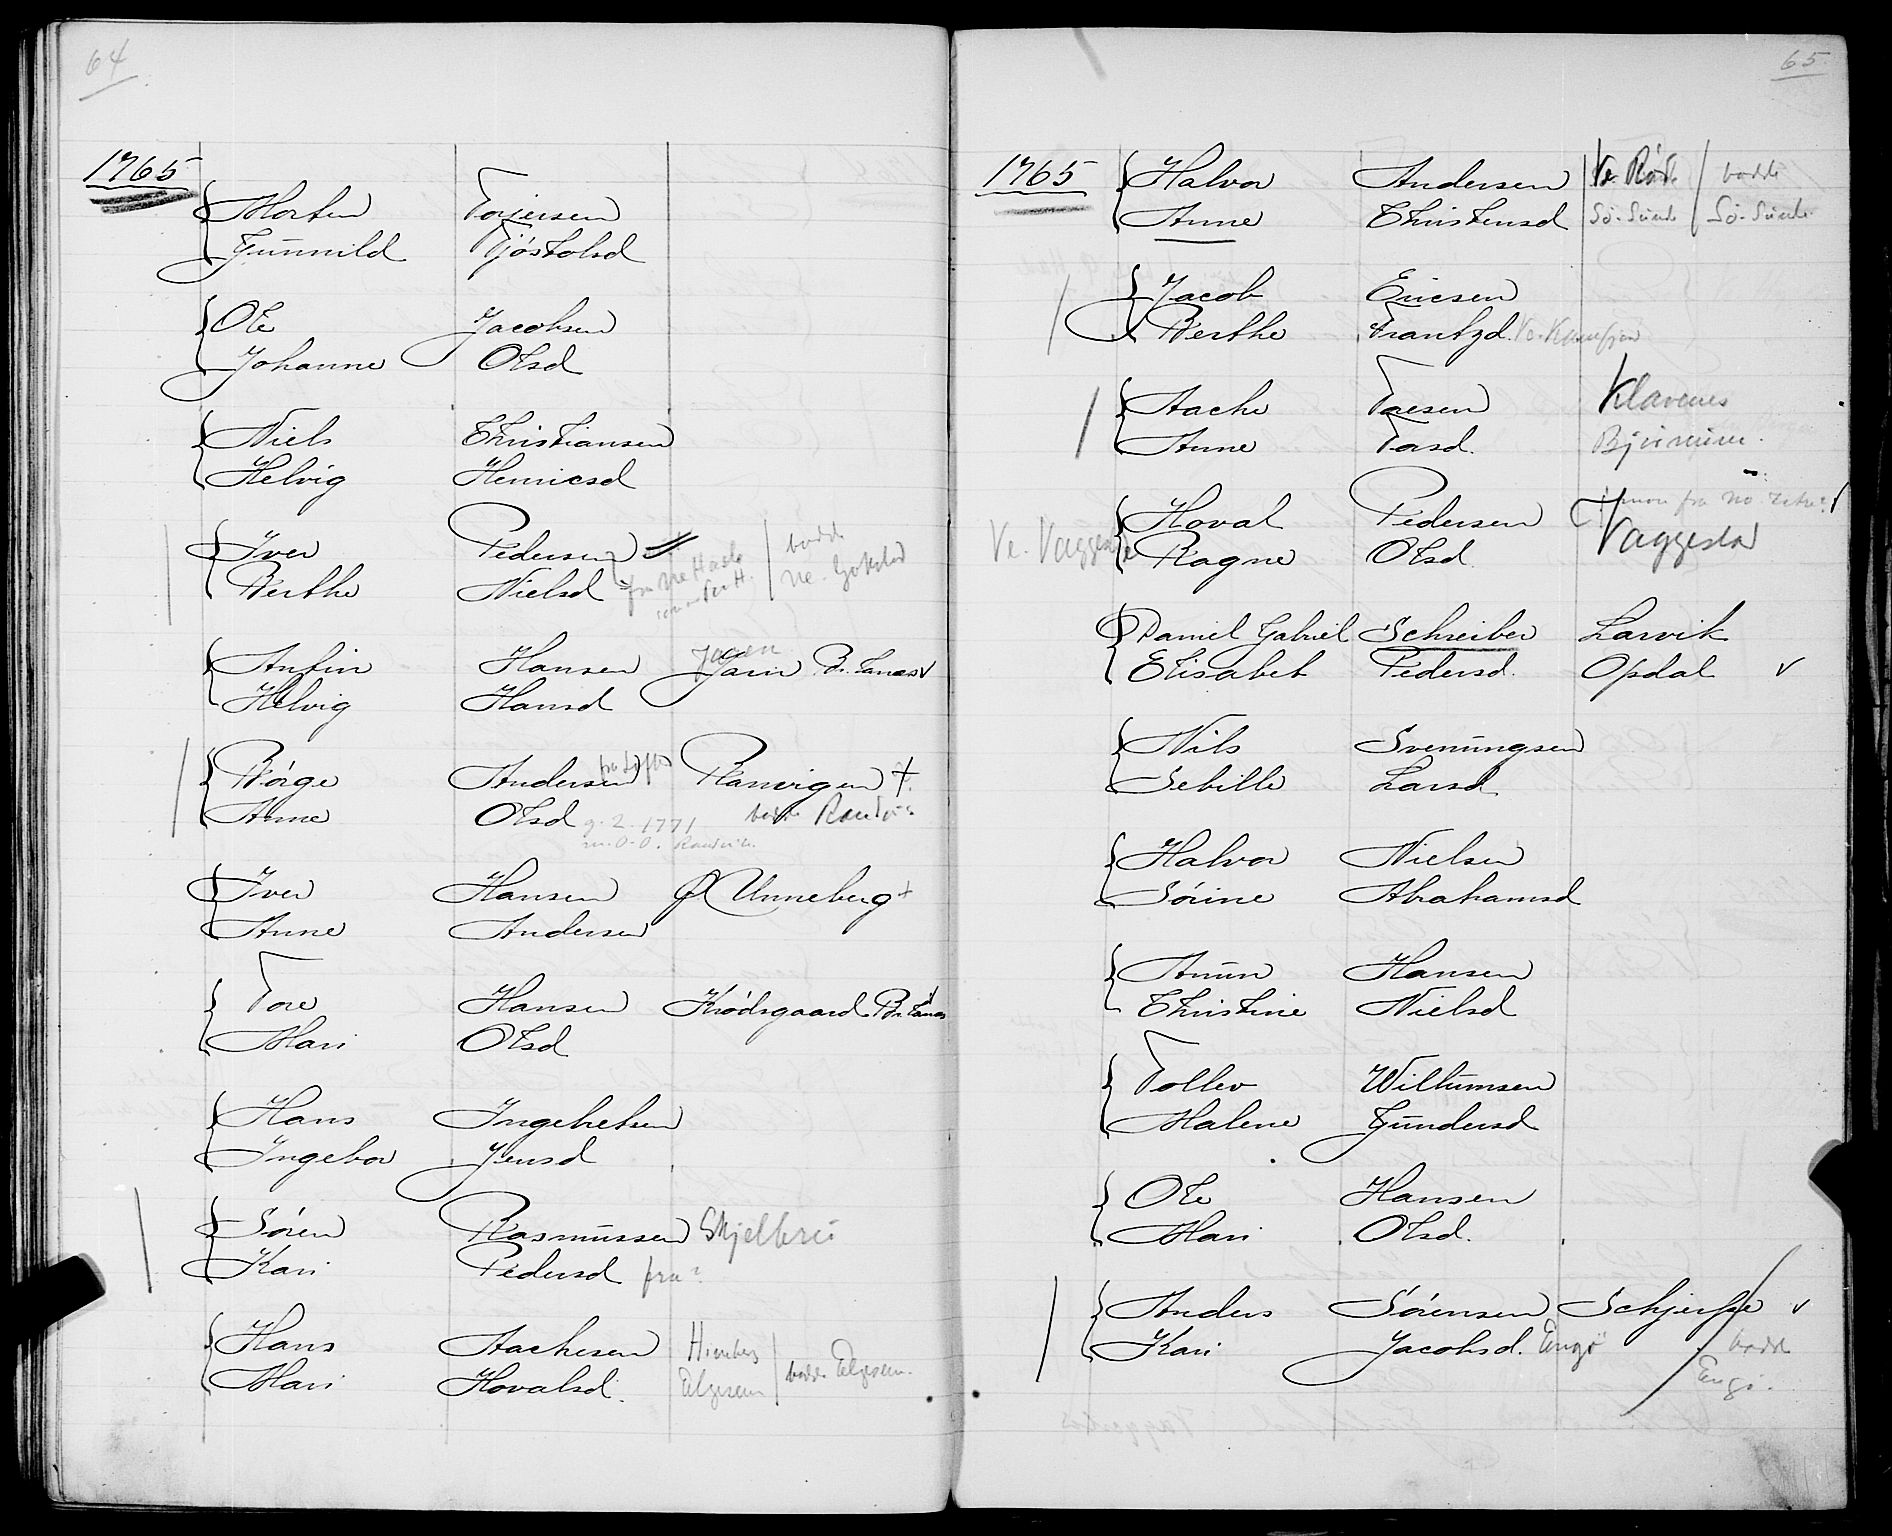 64
1765
Morten Torjersen
Gunnild Tjöstolsd
Ole Jacobsen
Johanne Olsd
Niels Christiansen
Helvig Henricsd
Iver Pedersen bodde
Berthe Nielsd fra
Jagen
Anfin Hansen Br. Tanas v
Helvig Hansd
Börge Andersen Ranvigen +
Anne Olsd g. 2. 1771 bodde
m. O. O.
Iver Hansen Ø Unneberg +
Anne Andersen
Tore Hansen Krödsgaard Br. Tanas
Mari Olsd
Hans Ingebretsen
Ingebor Jensd
Sören Rasmussen Skjelbrei
Kari Pedersd fra?
Hans Aachesen Himberg
Mari Hovalsd. Elgesem bodde Elgesem.
65
1765
Halvor Andersen Ve. Röd bodde
Anne Christensd Sö. Sö.
Jacob Ericsen
Berthe Frantzd.
Aache Toresen Klavenes
Anne Torsd.
Hoval Pedersen fra
Ragne Olsd. Vaggestad
Daniel Gabriel Schreiber Larvik
Elisabet Pedersd. Opdal v
Nils Svenungsen
Sebille Larsd
Halvor Nielsen
Sörine Abrahamsd
Anun Hansen
Christine Nielsd
Tollev Willumsen
Malene Gundersd
Ole Hansen
Mari Olsd.
Anders Sörensen Schjerfse v
Kari Jacobsd. Engö bodde
Engö.